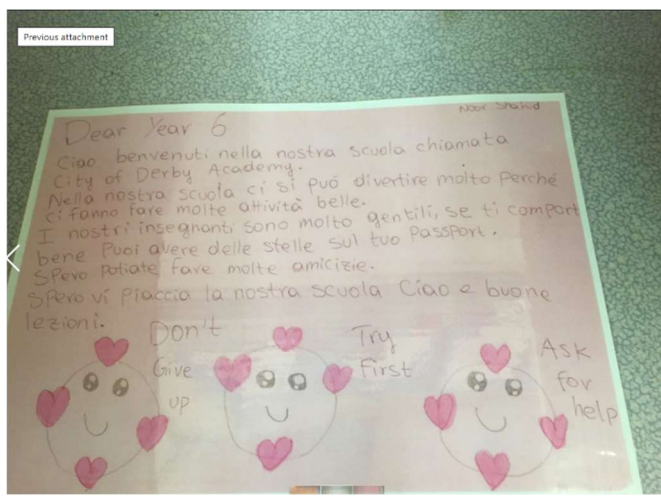 Previous attachment
Noor Shahid
Dear Year 6
Ciao benvenuti nella nostra scuola chiamata
City of Derby Academy.
Nella nostra scuola ci si può divertire molto perché
ci fanno fare molte attività belle.
I nostri insegnanti sono molto gentili, se ti comport
bene Puoi avere delle stelle sul tuo Passport.
Spero potiate fare molte amicizie.
Spero vi piaccia la nostra scuola Ciao e buone
lezioni.
Don't
Give
up
Try
First
Ask
for
help